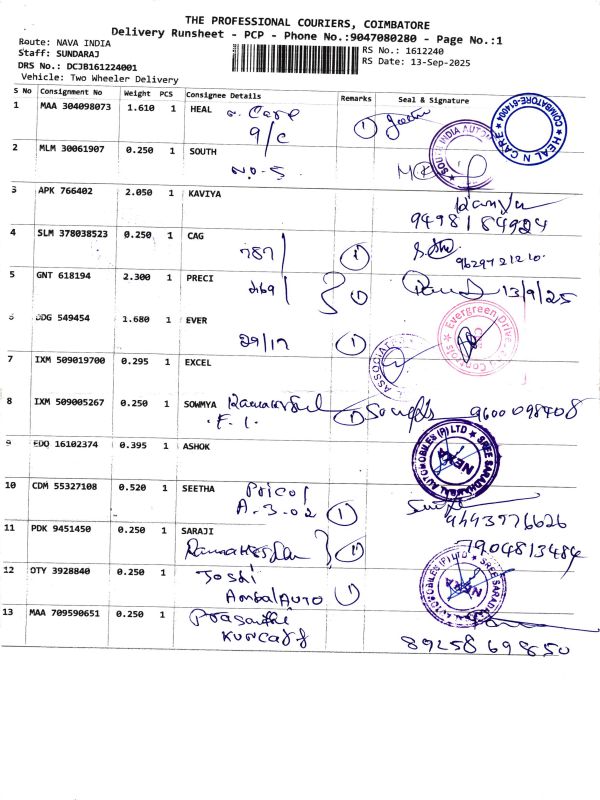 THE PROFESSIONAL COURIERS, COIMBATORE
Delivery Runsheet - PCP - Phone No.:9047080280 - Page No.:1
Route: NAVA INDIA
Staff: SUNDARAJ
DRS No.: DCJB161224001
Vehicle: Two Wheeler Delivery
RS No.: 1612240
RS Date: 13-Sep-2025
S No Consignment No Weight PCS Consignee Details Remarks Seal & Signature
1 MAA 304098073 1.610 1 HEAL n Care
9/C 1
COIMBATORE-614004 ★ HEAL N CARE ★
2 MLM 30061907 0.250 1 SOUTH
NO-5
SOUTH INDIA AUTO
3 APK 766402 2.050 1 KAVIYA
9498184924
4 SLM 378038523 0.250 1 CAG
787 1
9629721210
5 GNT 618194 2.300 1 PRECI
1 13/9/25
6 DDG 549454 1.680 1 EVER
29/17 1
Evergreen Drive
7 IXM 509019700 0.295 1 EXCEL
ASSOCIAT
8 IXM 509005267 0.250 1 SOWMYA
F.1. 1 9600098408
9 EDQ 16102374 0.395 1 ASHOK
AUTOMOBILES (P) LTD ★ SREE SARADHAMBAL
NEXA
10 CDM 55327108 0.520 1 SEETHA Pricol
A-3-02 1
9443976626
11 PDK 9451450 0.250 1 SARAJI
1 7904813484
12 OTY 3928840 0.250 1 Joshi
Ambal AUTO 1
AUTOMOBILES (P) LTD ★ SREE SARADHAMBAL
NEXA
13 MAA 709590651 0.250 1 Prasanthi
89258698550